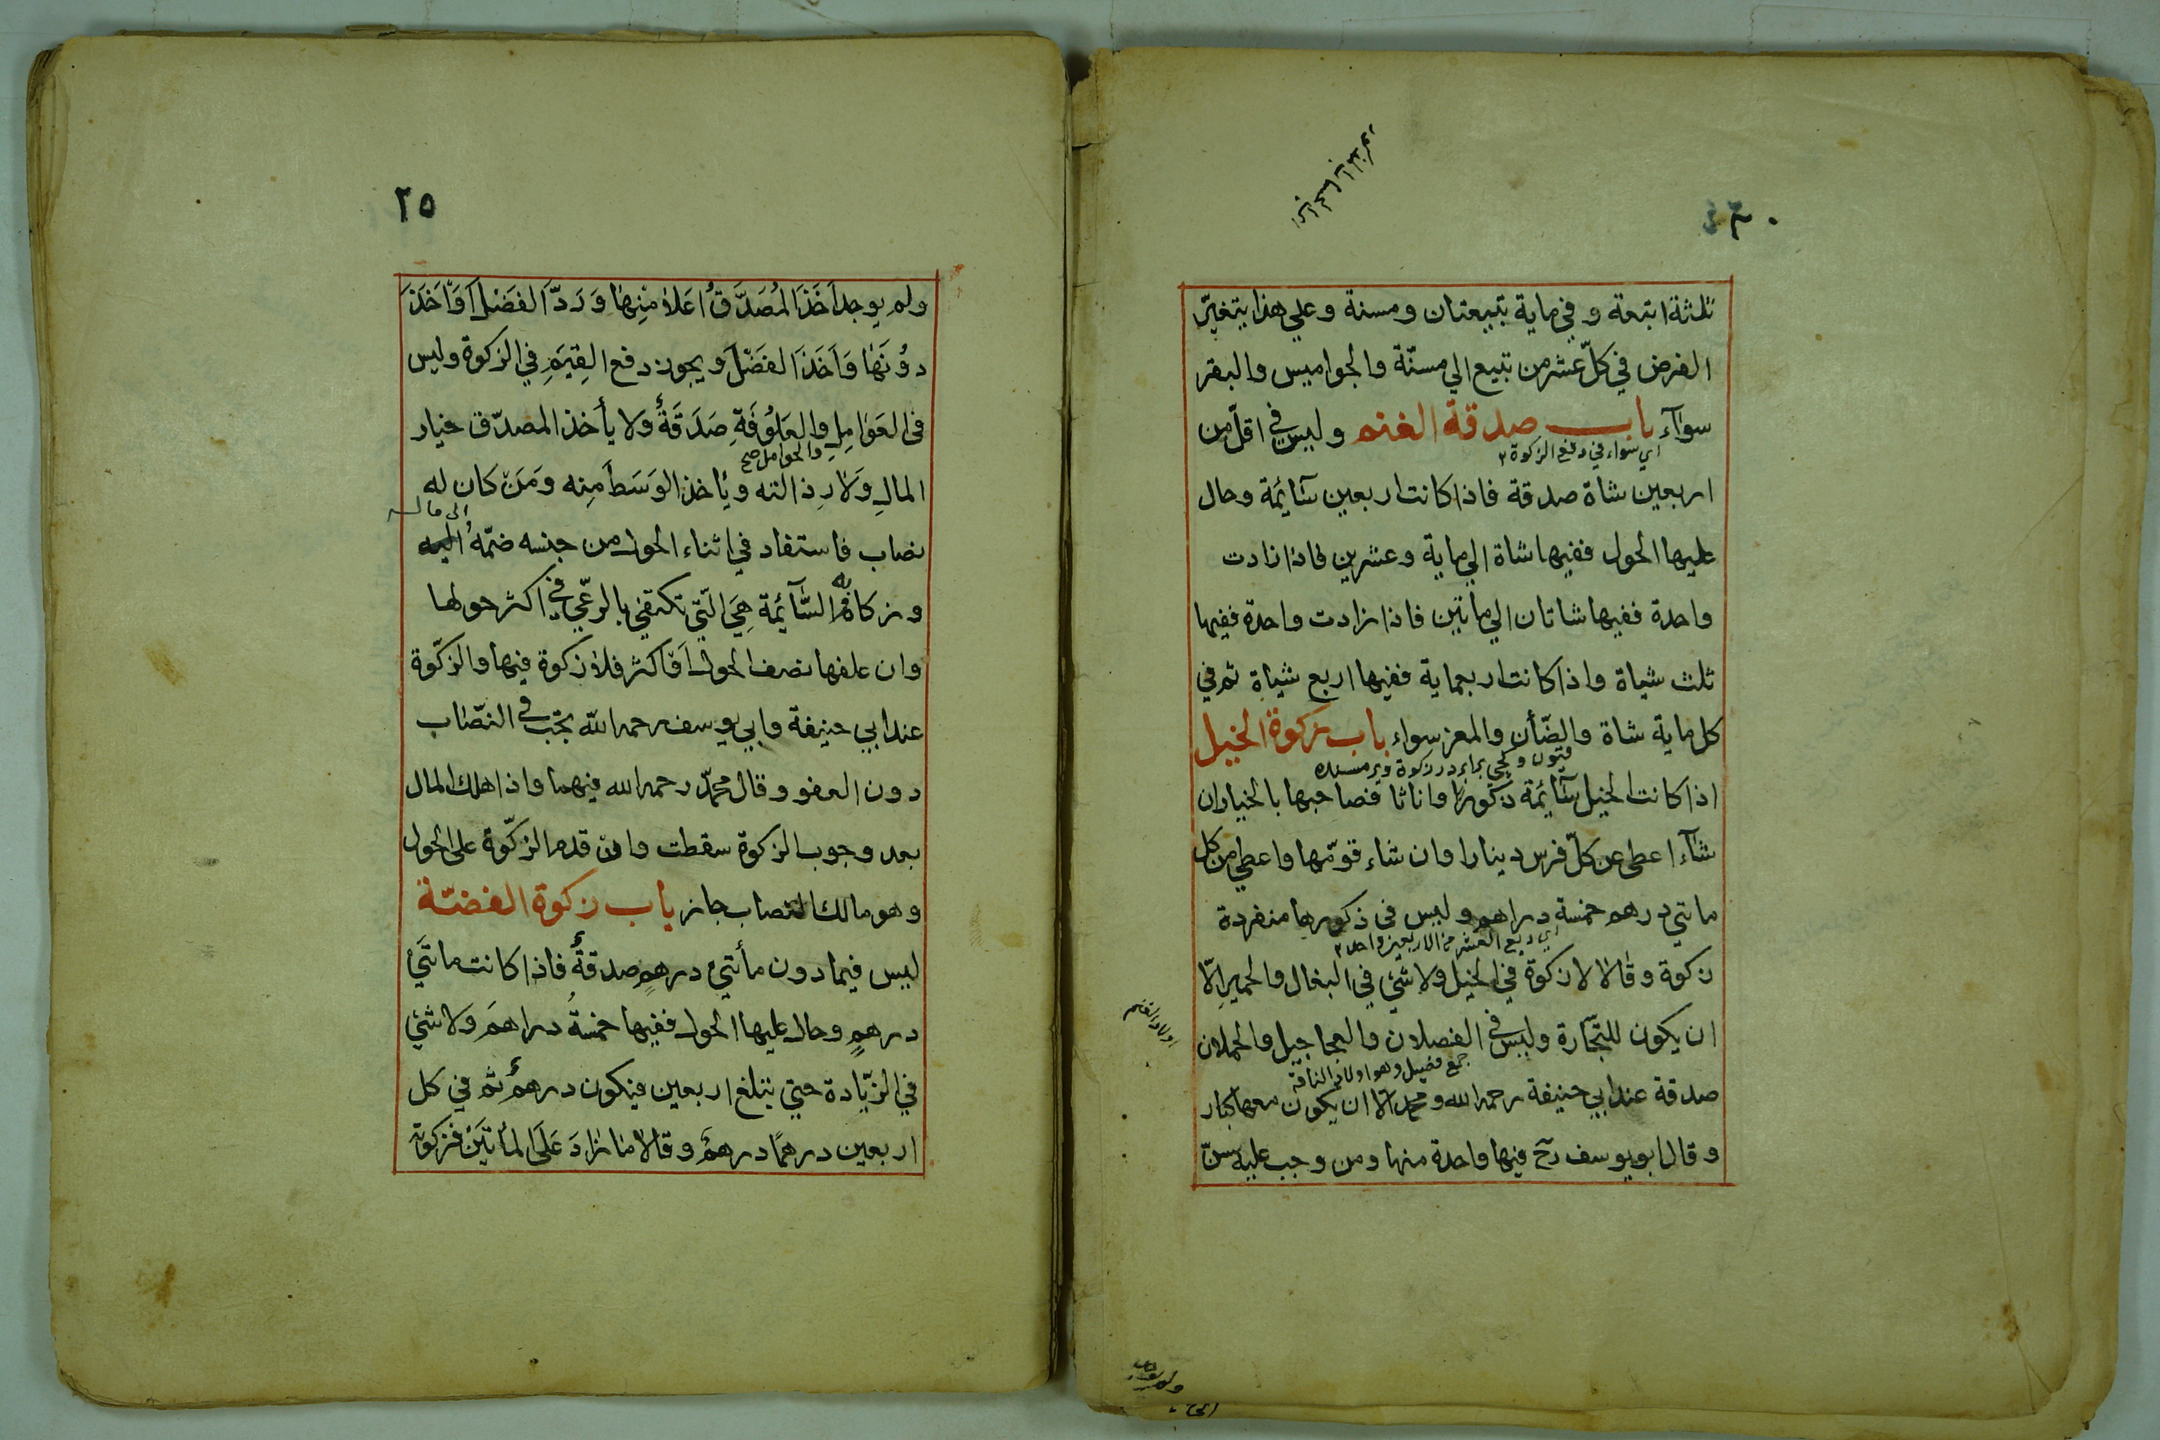 ثلثة اتبعة وفي ماية تبيعتان ومسنة وعلي هذا يتغيّر
الفرض في كلّ عشر من تبيع الي مسنّة والجواميس والبقر
سوآء باب صدقة الغنم وليس في اقلّ من
اي سواء في دفع الزكوة ٢
اربعين شاة صدقة فاذا كانت اربعين سآئمة وحال
عليها الحول ففيها شاة الي ماية وعشرين فاذا زادت
واحدة ففيها شاتان الي مأتين فاذا زادت واحدة ففيها
ثلث شياة واذا كانت اربعماية ففيها اربع شياةٍ ثم في
كل ماية شاة والضّأن والمعز سواء باب زكوة الخيل
اذا كانت الخيل سآئمة ذكورا واناثا فصاحبها بالخيار ان
شآء اعطى عن كلّ فرس دينارا وان شاء قوّمها واعطي من كل
مائتي درهم خمسة دراهم وليس في ذكورها منفردة
اي ربع العشر من الاربعين واحد ٢
زكوة وقالا لا زكوة في الخيل ولا شئ في البغال والحمير الّا
ان يكون للتجّارة وليس في الفصلان والعجاجيل والحملان
اولاد الغنم
جمع فصيل وهو اولاد الناقة
صدقة عند ابي حنيفة رحمه الله ومحمد الّا ان يكون معها كبار
وقال ابو يوسف رح فيها واحدة منها ومن وجب عليه سنّ
٢٥
ولم يوجد اَخَذَ المُصَدَّقُ اعَلا مِنْهَا وَرَدَّ الفَضْلَ اَوْ اَخَذَ
دوُنَهَا وَاَخَذَ الفَضْلَ ويجوز دفع القِيَمِ في الزكوة وليس
في العَوَامِلِ والعَلُوفَةِ صَدَقَةٌ ولا يأخذ المصدّق خيار
والحوامل صح
المالِ وَلا رِذالته ويأخذ الوَسَطَ مِنه ومَنْ كان له
الى ماله
نصاب فاستفاد في اثناء الحول من جنسه ضمّهُ اليه
وزكاه به السَّآئِمة هِيَ الّتي تكتفي بالرعّي في اكثر حولها
وان علفها نصف الحول اَوْ اكثر فلا زكوة فيها والزكّوة
عند ابي حنيفة وابي يوسف رحمه اللّه تجّب في النصّاب
دون العفو وقال محمّد رحمه الله فيهما واذا هلك المال
بعد وجوب الزكوة سقطت وان قدم الزكّوة على الحول
وهو مالك النصاب جاز باب زكوة الفضّة
ليس فيما دون مأتي درهمٍ صدقةٌ فاذا كانت مائتَيْ
درهمٍ وحال عليها الحول ففيها خمسةُ دراهمَ ولا شئ
في الزّيادة حتي يبلغ اربعين فيكون درهمٌ ثم في كل
اربعين درهمًا درهمٌ وقالا مَا زَادَ عَلَى المأتَيْن فزكوته